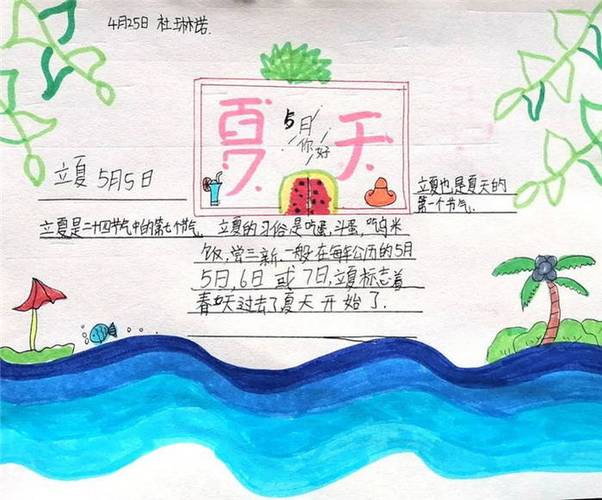 4月25日 杜琳诺
夏天
5月
你好
立夏 5月5日
立夏也是夏天的
第一个节气.
立夏是二十四节气中的第七个节气. 立夏的习俗是吃蛋,斗蛋,吃乌米
饭,尝三新.一般在每年公历的5月
5日,6日 或 7日,立夏标志着
春天过去了夏天开始了.